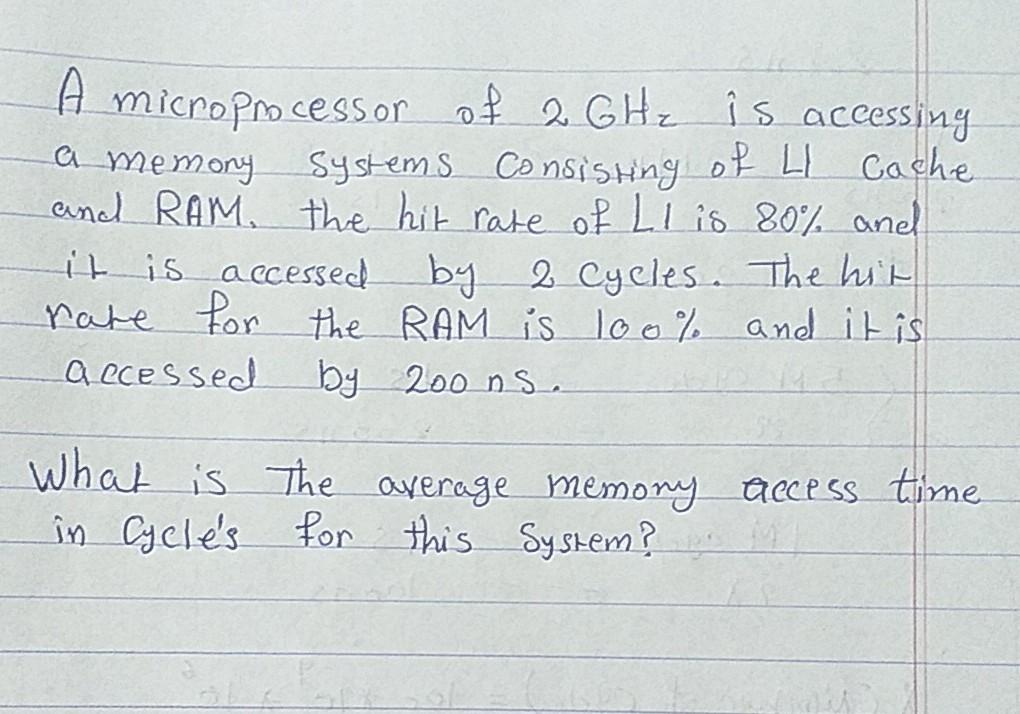 A microprocessor of 2 GHz is accessing
a memory systems consisting of L1 cache
and RAM. the hit rate of L1 is 80% and
it is accessed by 2 cycles. The hit
rate for the RAM is 100% and it is
accessed by 200 ns.
What is The average memory access time
in Cycle's for this System?